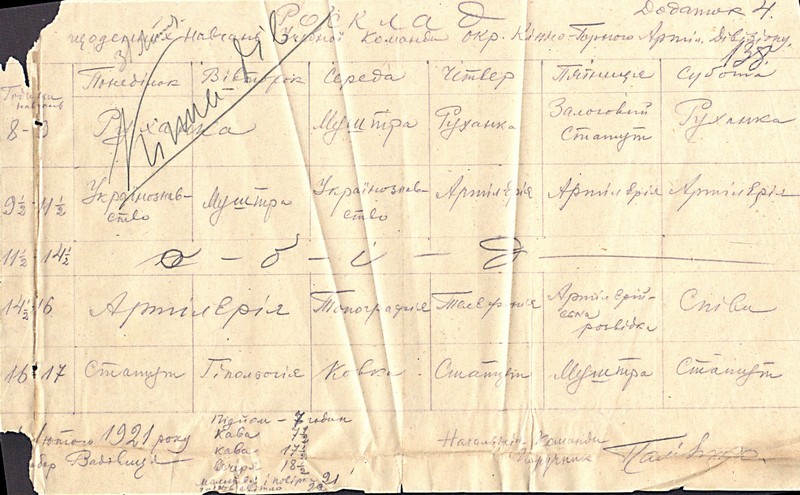 Додаток 4.
Розклад
щоденних навчань Учбової Команди окр. Кінно-Горного Артил. Дівізіону.
138
Години навчань | Понеділок | Вівторок | Середа | Четвер | Пятниця | Субота
8 - 9 | Руханка | Муштра | Руханка | Залоговий Статут | Руханка
9½ - 11½ | Українознавство | Муштра | Українознавство | Артілерія | Артілерія | Артілерія
11½ - 14½ | о - б - і - д
14½ 16 | Артілерія | Топографія | Телефонія | Артілерійська розвідка | Співи
16 - 17 | Статут | Гіпольогія | Ковка | Статут | Муштра | Статут
лютого 1921 року
Вадовиці
Підйом - 7 годин
Кава
Кава 17
Вечеря 18
Молитва і повірка 21
Начальник Команди
Поручник